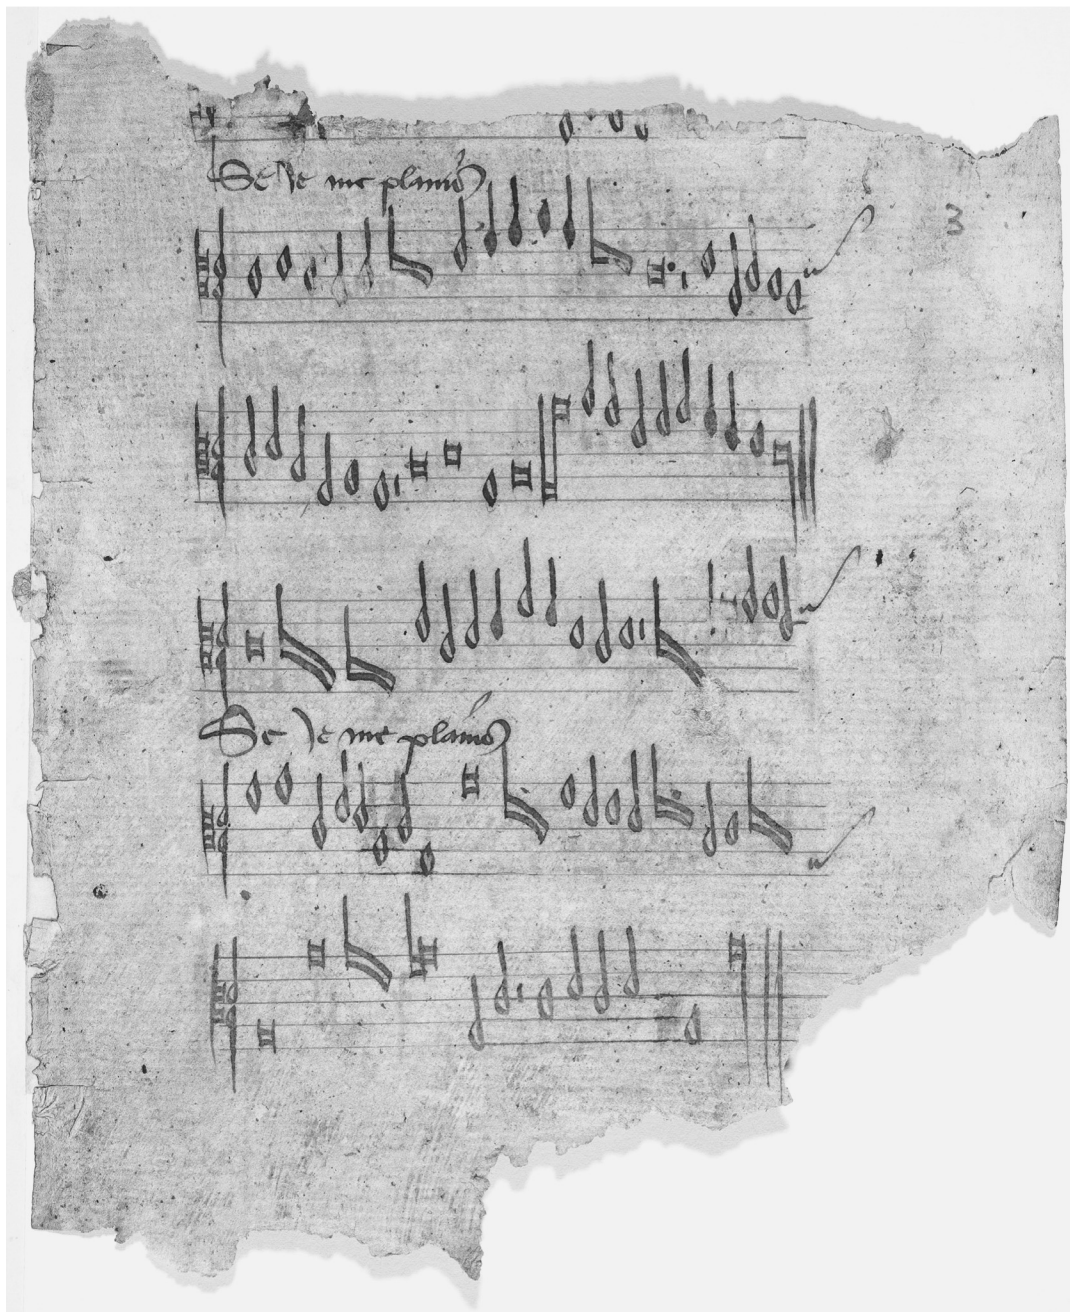 Se Je me plains
3
Se Je me plains